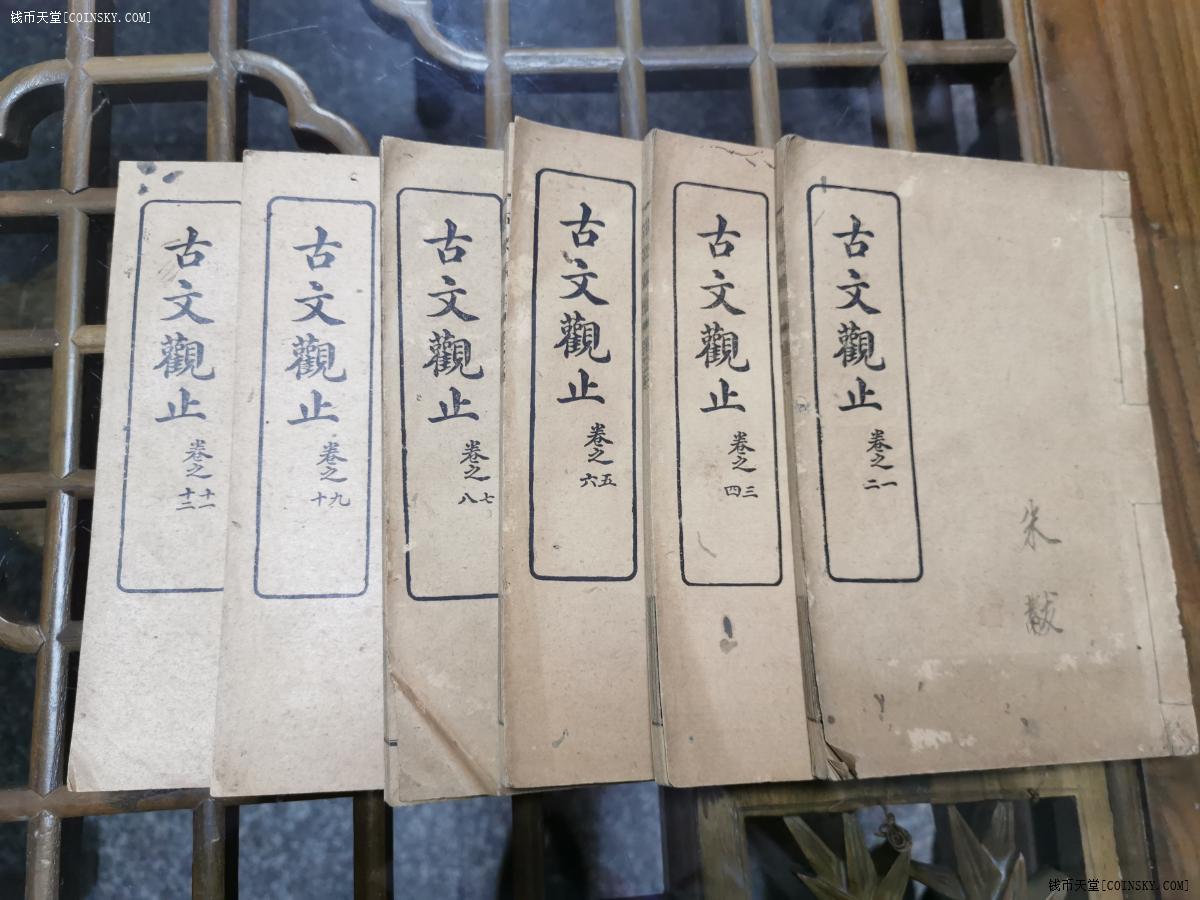 钱币天堂[COINSKY.COM]
朱黻
古文觀止
卷之一二
古文觀止
卷之三四
古文觀止
卷之五六
古文觀止
卷之七八
古文觀止
卷之九十
古文觀止
卷之十一十二
钱币天堂[COINSKY.COM]